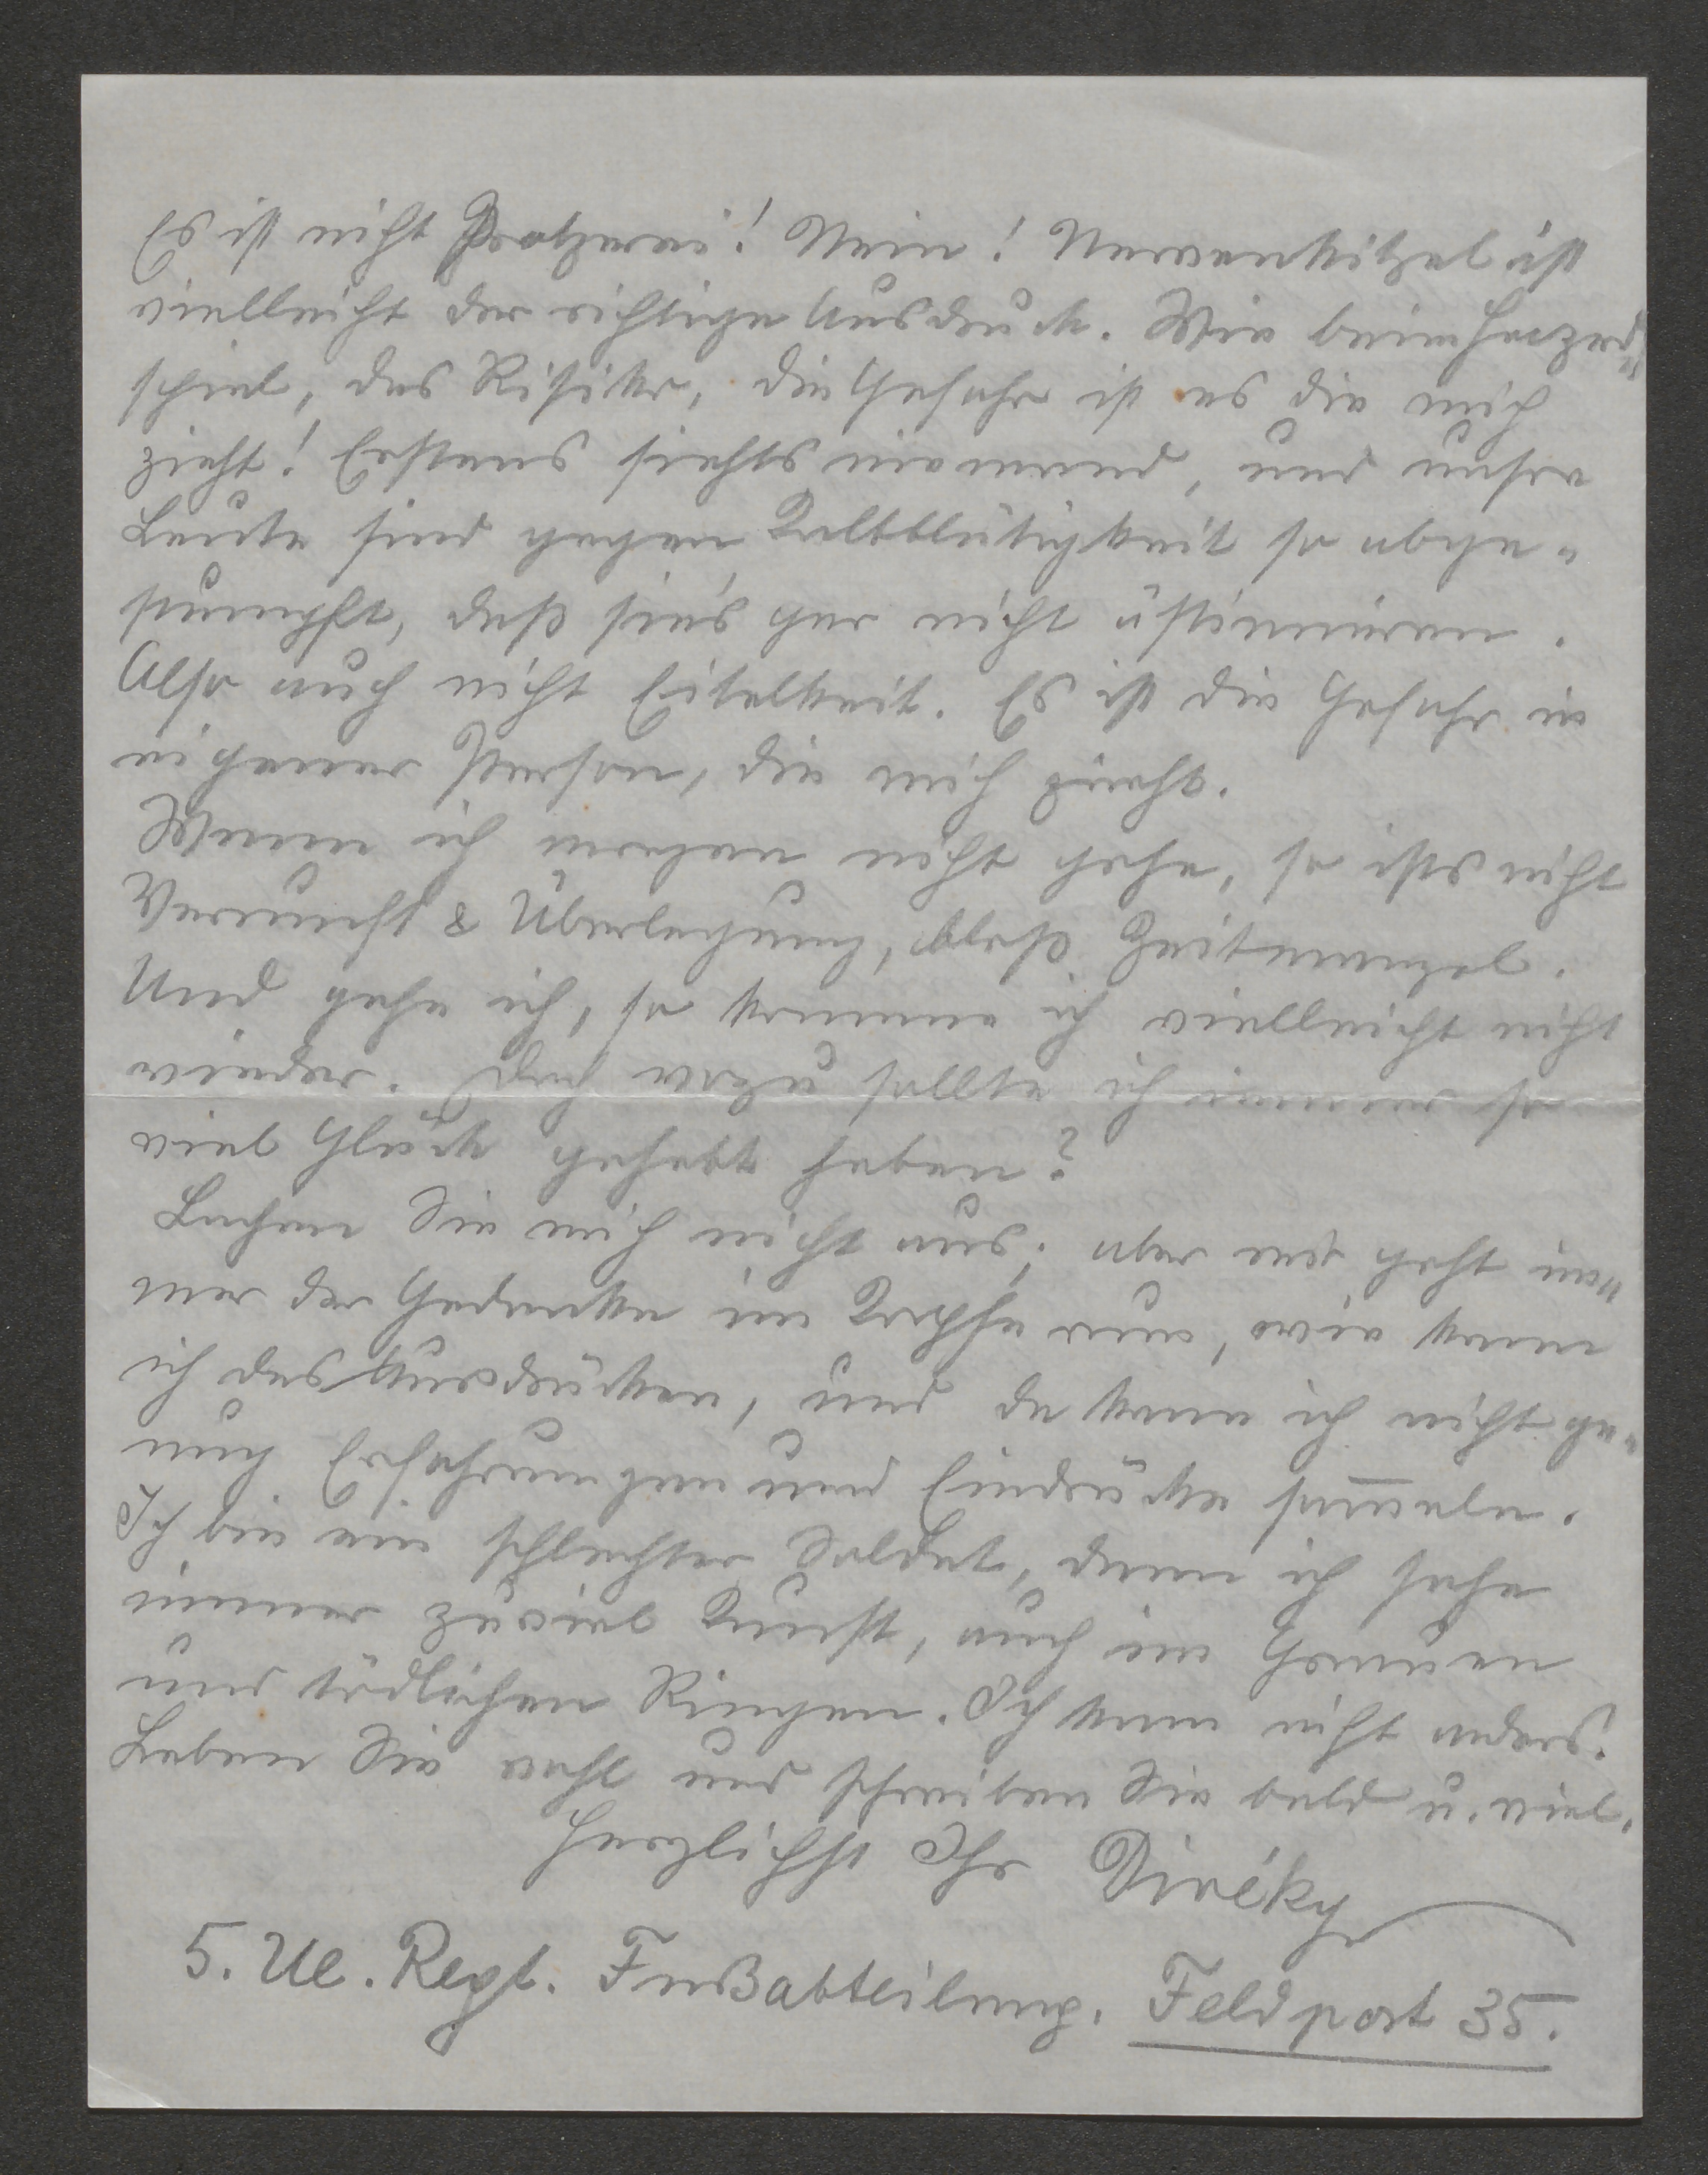 Es ist nicht Protzerei! Nein! Nervenkitzel ist
vielleicht der richtige Ausdruck. Wie beim Hazard-
spiel, das Risiko, die Gefahr ist es die mich
zieht! Erstens siehts niemand, und unsere
Leute sind gegen Kaltblütigkeit so abge-
stumpft, daß sie's gar nicht ästimieren.
Also auch nicht Eitelkeit. Es ist die Gefahr in
eigener Person, die mich zieht.
Wenn ich morgen nicht gehe, so ists nicht
Vernunft & Überlegung, bloß Zeitmangel.
Und gehe ich, so komme ich vielleicht nicht
wieder. Doch wozu sollte ich immer so
viel Glück gehabt haben?
Lachen Sie mich nicht aus; aber mir geht im-
mer der Gedanke im Kopfe rum, wie kann
ich das ausdrücken, und da kann ich nicht ge-
nug Erfahrungen und Eindrücke sam̅eln.
Ich bin ein schlechter Soldat, denn ich sehe
immer zuviel Kunst, auch im Grausen
und tödlichen Ringen. Ich kann nicht anders.
Leben Sie wohl und schreiben Sie bald u. viel.
Herzlichst Ihr Divéky
5. Ul. Regt. Fußabteilung. Feldpost 35.